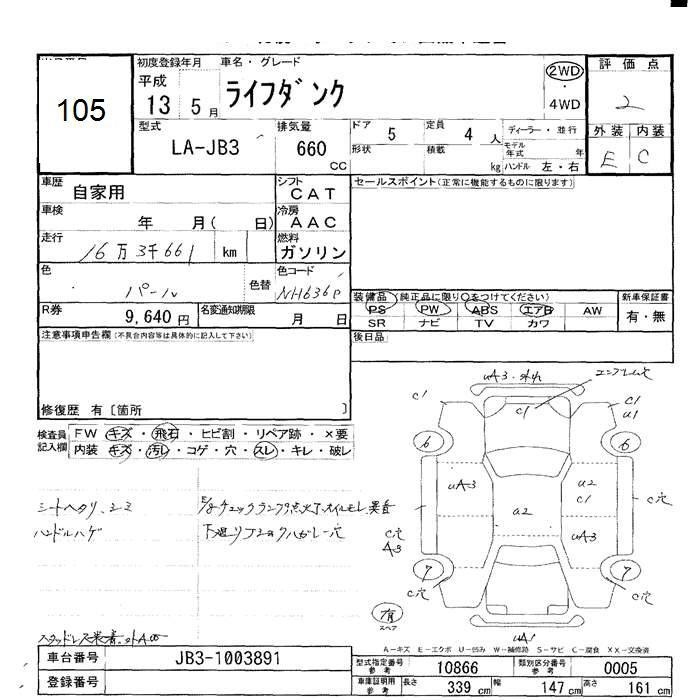 105
初度登録年月
平成
13 5 月
車名・グレード
ライフダンク
2WD
・
4WD
評価点
2
外装 内装
E C
型式
LA-JB3
排気量
660
CC
ドア 5
定員 4 人
形状
積載 kg
ディーラー・並行
モデル年式 年
ハンドル 左・右
車歴
自家用
シフト
CAT
車検
年 月( 日)
冷房
AAC
走行
16万3千661 km
燃料
ガソリン
色
パール
色替
色コード
NH636P
R券
9,640 円
名変通知期限
月 日
セールスポイント(正常に機能するものに限ります)
装備品(純正品に限り○をつけてください)
PS PW ABS エアB AW
SR ナビ TV カワ
新車保証書
有・無
後日品
注意事項申告欄(不具合内容等は具体的に記入して下さい)
修復歴 有〔箇所 〕
検査員
記入欄
FW キズ・飛石・ヒビ割・リペア跡・×要
内装 キズ・汚レ・コゲ・穴・スレ・キレ・破レ
シートヘタリ、シミ
ハンドルハゲ
E/gチェックランプ点灯 オイルモレ 異音
uA3
C1
C1
C1
u1
6
6
uA3
u2
C1
a2
uA3
C穴
C穴
A3
7
7
C穴
C穴
uA1
有
スペア
A－キズ E－エクボ U－凹み W－補修跡 S－サビ C－腐食 XX－交換済
車台番号
JB3-1003891
登録番号
型式指定番号
参考
10866
類別区分番号
参考
0005
車庫証明用
参考
長さ 339 cm
幅 147 cm
高さ 161 cm